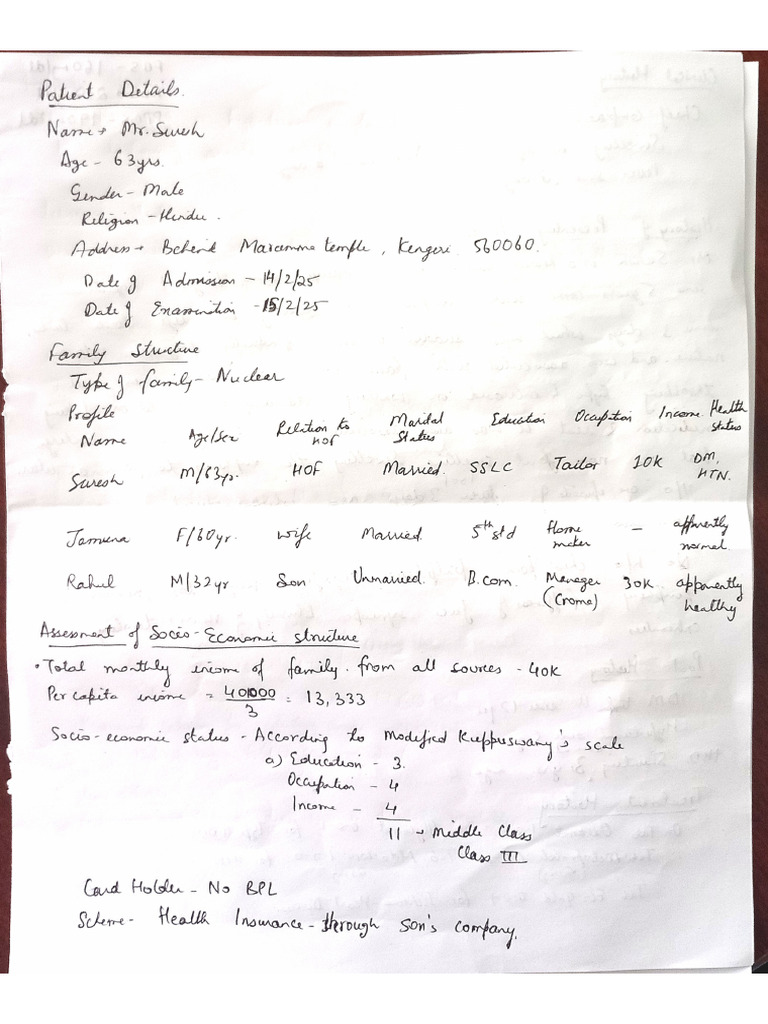 Patient Details.
Name → Mr. Suresh
Age - 63yrs.
Gender - Male
Religion - Hindu.
Address → Behind Maramma temple, Kengeri 560060.
Date of Admission - 14/2/25
Date of Examination - 15/2/25
Family Structure
Type of family - Nuclear
Profile
Name Age/Sex Relation to HOF Marital Status Education Occupation Income Health status
Suresh M/63yr. HOF Married. SSLC Tailor 10K DM, HTN.
Jamuna F/60yr. wife Married 5th std Home maker - apparently normal.
Rahul M/32yr Son Unmarried. B.com. Manager (Croma) 30K apparently healthy
Assessment of Socio-Economic structure
• Total monthly income of family from all sources - 40K
Per capita income = 40000/3 = 13,333
Socio-economic status - According to Modified Kuppuswamy's scale
a) Education - 3.
Occupation - 4
Income - 4
11 → Middle Class
Class III
Card Holder - No BPL
Scheme - Health Insurance - through son's company.